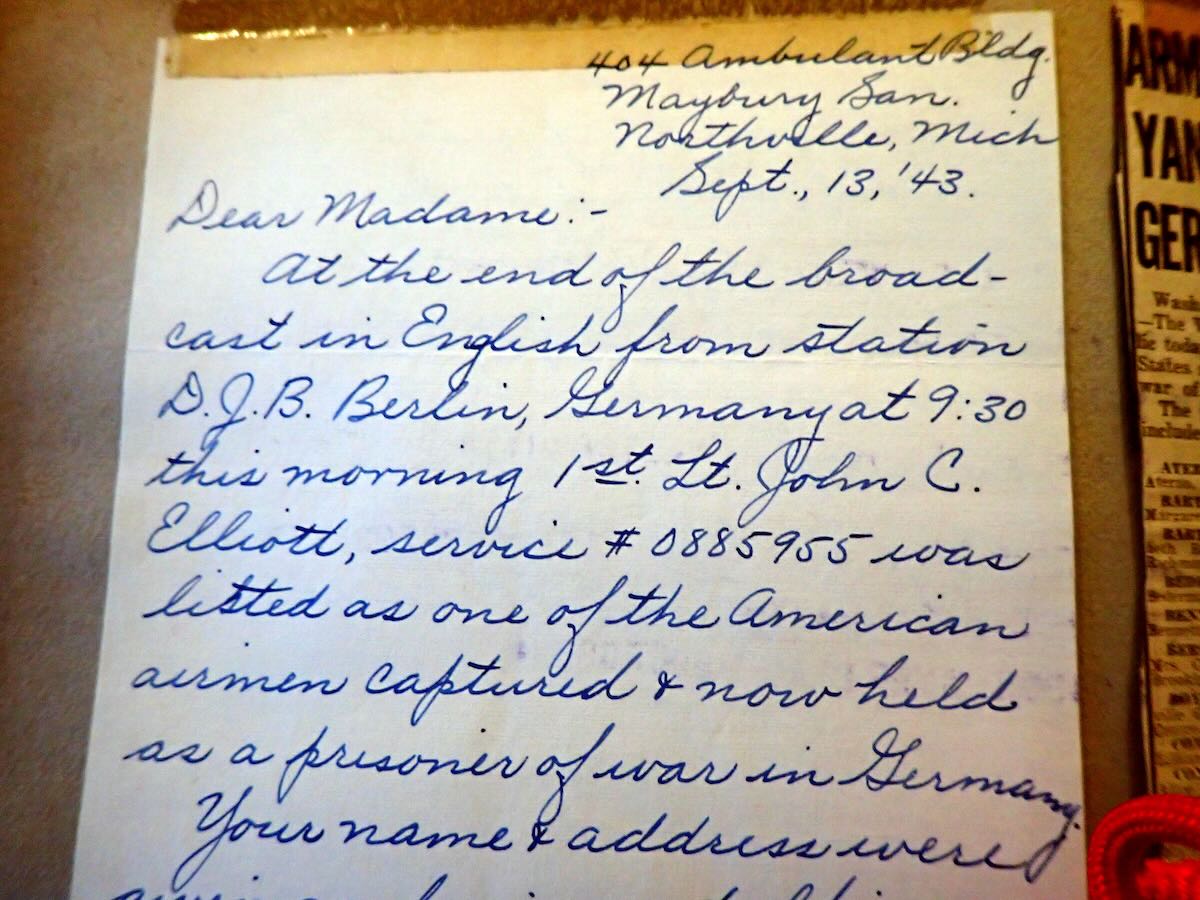 404 Ambulant Bldg.
Maybury San.
Northville, Mich
Sept., 13, '43.
Dear Madame:-
At the end of the broad-
cast in English from station
D.J.B. Berlin, Germany at 9:30
this morning 1st. Lt. John C.
Elliott, service # 0885955 was
listed as one of the American
airmen captured & now held
as a prisoner of war in Germany.
Your name & address were
ARM
YAN
GER
Wash
—The
States
war of
The
include